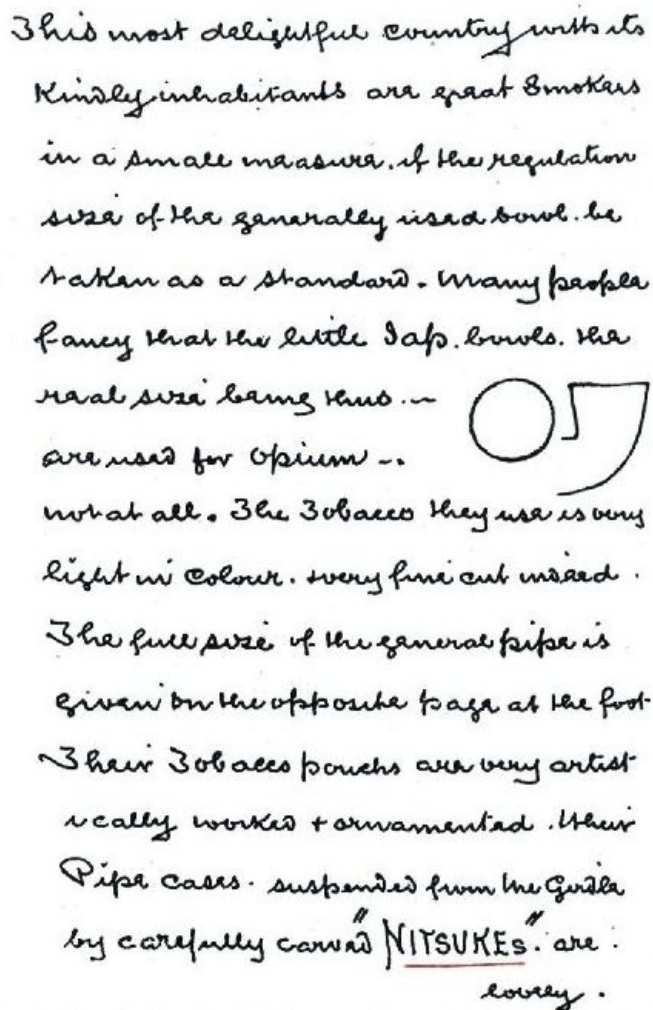 This most delightful country with its
Kindly inhabitants are great Smokers
in a small measure. if the regulation
size of the generally used bowl. be
taken as a standard. Many people
fancy that the little Jap. bowls. the
real size being thus .~
are used for Opium ~.
not at all. The Tobacco they use is very
light in Colour. & very fine cut indeed.
The full size of the general pipe is
given on the opposite page at the foot
Their Tobacco pouchs are very artist
ically worked + ornamented. their
Pipe cases. suspended from the Girdle
by carefully carved "NITSUKEs". are.
lovely.